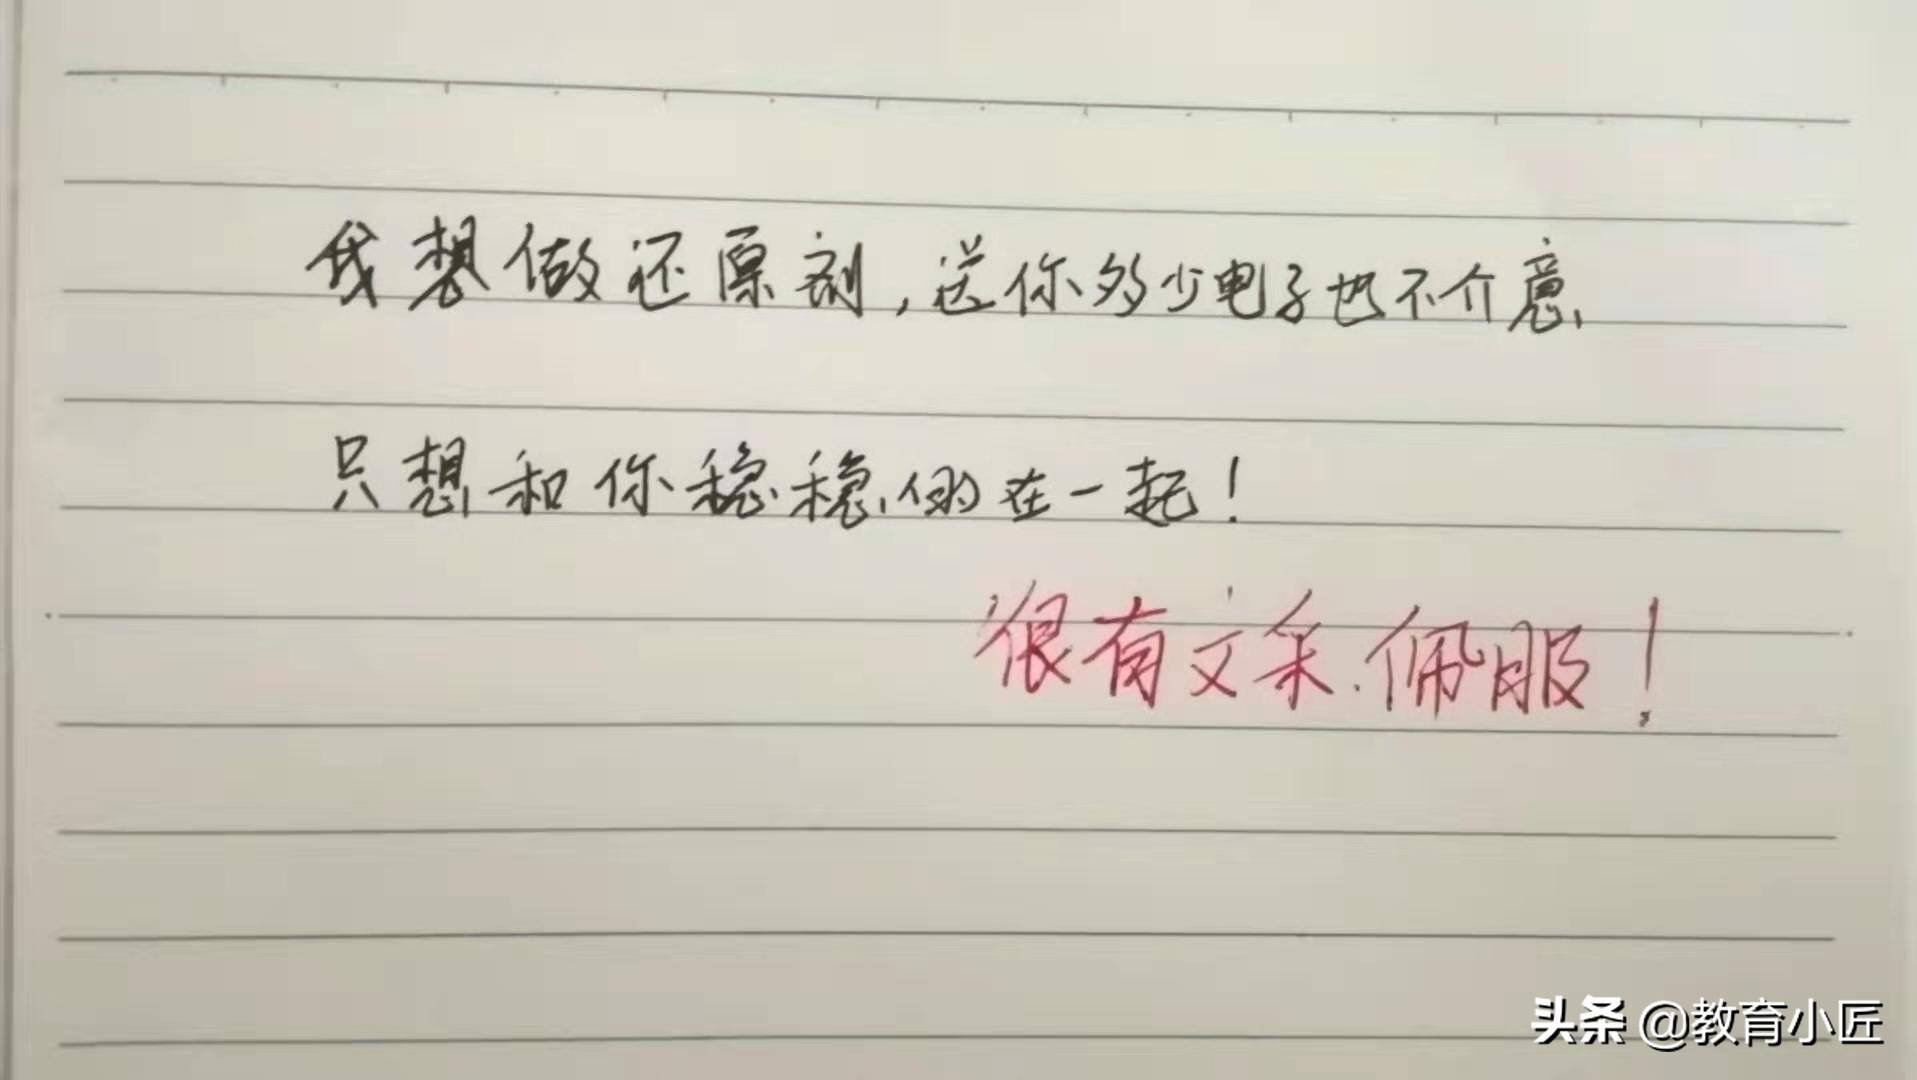 我想做还原剂，送你多少电子也不介意
只想和你稳稳的在一起！
很有文采.佩服！
头条 @教育小匠